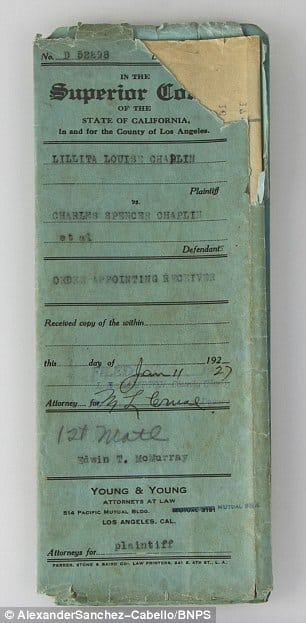 No. D 52298
IN THE
Superior Co
OF THE
STATE OF CALIFORNIA,
In and for the County of Los Angeles.
LILLITA LOUISE CHAPLIN
Plaintiff
vs.
CHARLES SPENCER CHAPLIN
et al
Defendants
ORDER APPOINTING RECEIVER
Received copy of the within
this day of Jan 11 1927
Attorney for
1st Matl
Edwin T. McMurray
YOUNG & YOUNG
ATTORNEYS AT LAW
514 PACIFIC MUTUAL BLDG.
LOS ANGELES, CAL.
Attorneys for plaintiff
PARKER, STONE & BAIRD CO., LAW PRINTERS, 241 E. 4TH ST., L. A.
© AlexanderSanchez-Cabello/BNPS